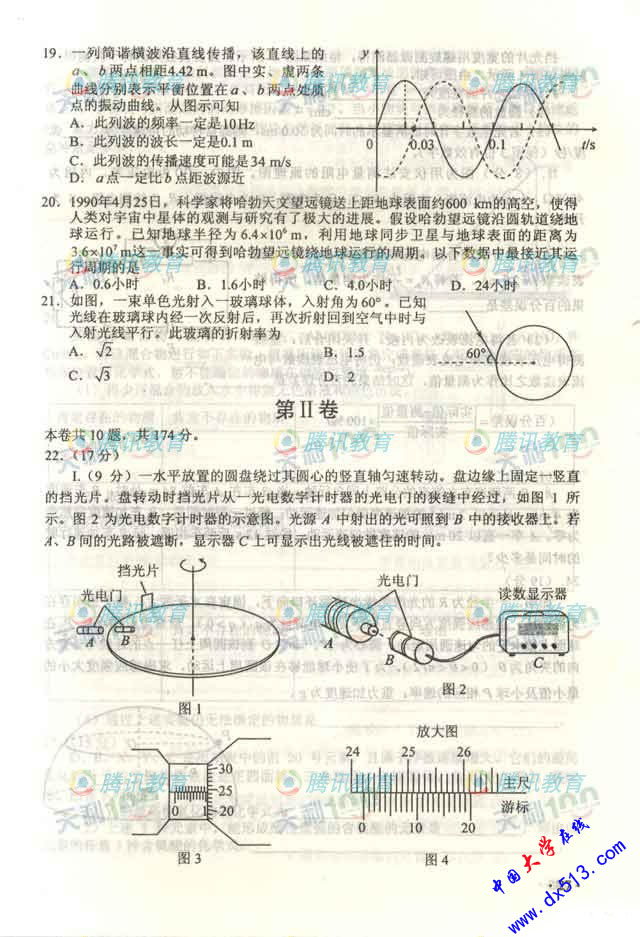 19．一列简谐横波沿直线传播，该直线上的
a、b两点相距4.42 m。图中实、虚两条
曲线分别表示平衡位置在a、b两点处质
点的振动曲线。从图示可知
A．此列波的频率一定是10Hz
B．此列波的波长一定是0.1 m
C．此列波的传播速度可能是34 m/s
D．a点一定比b点距波源近
y
0
0.03
0.1
t/s
20．1990年4月25日，科学家将哈勃天文望远镜送上距地球表面约600 km的高空，使得
人类对宇宙中星体的观测与研究有了极大的进展。假设哈勃望远镜沿圆轨道绕地
球运行。已知地球半径为6.4×10⁶ m，利用地球同步卫星与地球表面的距离为
3.6×10⁷ m这一事实可得到哈勃望远镜绕地球运行的周期。以下数据中最接近其运
行周期的是
A．0.6小时 B．1.6小时 C．4.0小时 D．24小时
21．如图，一束单色光射入一玻璃球体，入射角为60°。已知
光线在玻璃球内经一次反射后，再次折射回到空气中时与
入射光线平行。此玻璃的折射率为
A．√2 B．1.5
C．√3 D．2
60°
第Ⅱ卷
本卷共10题，共174分。
22．(17分)
I.（9 分）一水平放置的圆盘绕过其圆心的竖直轴匀速转动。盘边缘上固定一竖直
的挡光片。盘转动时挡光片从一光电数字计时器的光电门的狭缝中经过，如图 1 所
示。图 2 为光电数字计时器的示意图。光源 A 中射出的光可照到 B 中的接收器上。若
A、B 间的光路被遮断，显示器 C 上可显示出光线被遮住的时间。
挡光片
光电门
A
B
图1
光电门
读数显示器
A
B
C
图2
30
25
20
0 1
图3
放大图
24 25 26
主尺
游标
0 10 20
图4
腾讯教育
天利100
中国大学在线
www.dx513.com